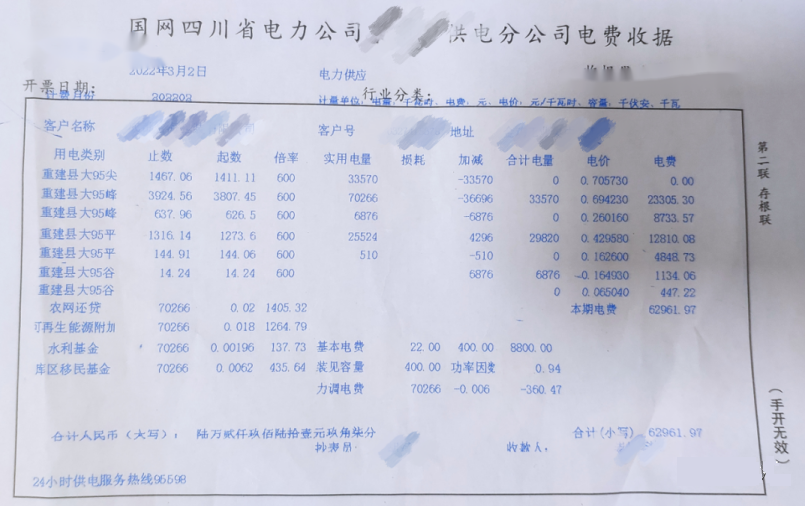 国网四川省电力公司 供电分公司电费收据
2022年3月2日 电力供应
开票日期： 行业分类：
计费月份 202202 计量单位：电量：千瓦时、电费：元、电价：元/千瓦时、容量：千伏安、千瓦
客户名称 客户号 地址
用电类别 止数 起数 倍率 实用电量 损耗 加减 合计电量 电价 电费
重建县大95尖 1467.06 1411.11 600 33570 -33570 0 0.705730 0.00
重建县大95峰 3924.56 3807.45 600 70266 -36696 33570 0.694230 23305.30
重建县大95峰 637.96 626.5 600 6876 -6876 0 0.260160 8733.57
重建县大95平 1316.14 1273.6 600 25524 4296 29820 0.429580 12810.08
重建县大95平 144.91 144.06 600 510 -510 0 0.162600 4848.73
重建县大95谷 14.24 14.24 600 6876 6876 -0.164930 1134.06
重建县大95谷 0 0.065040 447.22
农网还贷 70266 0.02 1405.32 本期电费 62961.97
可再生能源附加 70266 0.018 1264.79
水利基金 70266 0.00196 137.73 基本电费 22.00 400.00 8800.00
库区移民基金 70266 0.0062 435.64 装见容量 400.00 功率因数 0.94
力调电费 70266 -0.006 -360.47
合计人民币（大写）： 陆万贰仟玖佰陆拾壹元玖角柒分 合计(小写) 62961.97
抄表员 收款人：
24小时供电服务热线95598
第二联 存根联
（手开无效）